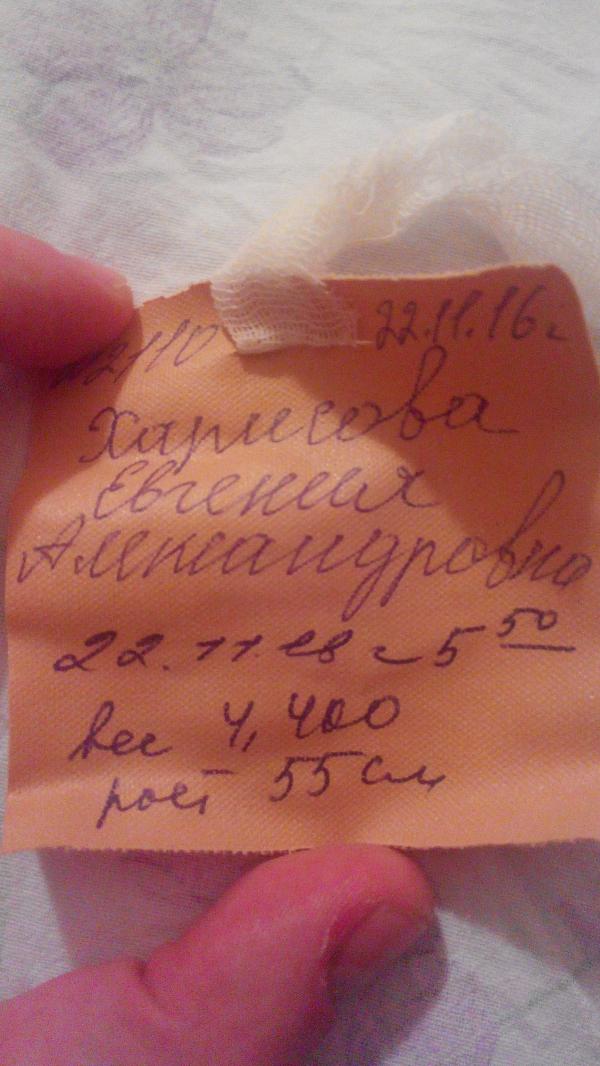 22.11.16г
Харисова
Евгения
Александровна
22.11. г 5 50
вес 4,400
рост 55 см